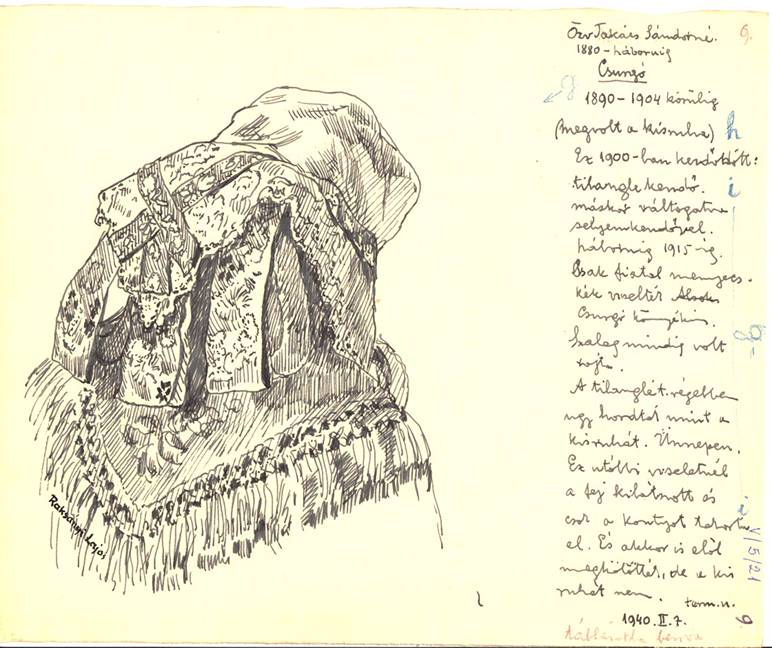 Özv Takács Sándorné.
1880 - háboruig
Csurgó
1890-1904 körülig
(megvolt a kisruha)
Ez 1900-ban kendőkötött:
tilangle kendő.
máskor váltogatva
selyemkendővel.
háboruig 1915-ig.
Csak fiatal menyecs-
kék viselték
Csurgó környékin.
Szalag mindig volt
rajta.
A tilanglét régebben
ugy hordták mint a
kisruhát. Ünnepen.
Ez utóbbi viseletnél
a fej kilátszott és
csak a kontyot takarta
el. És akkor is elől
megkötötték, de a kis
ruhát nem.
term. n.
1940. II. 7.
V/5/21
9.
h
i
g-
Raksányi Lajos